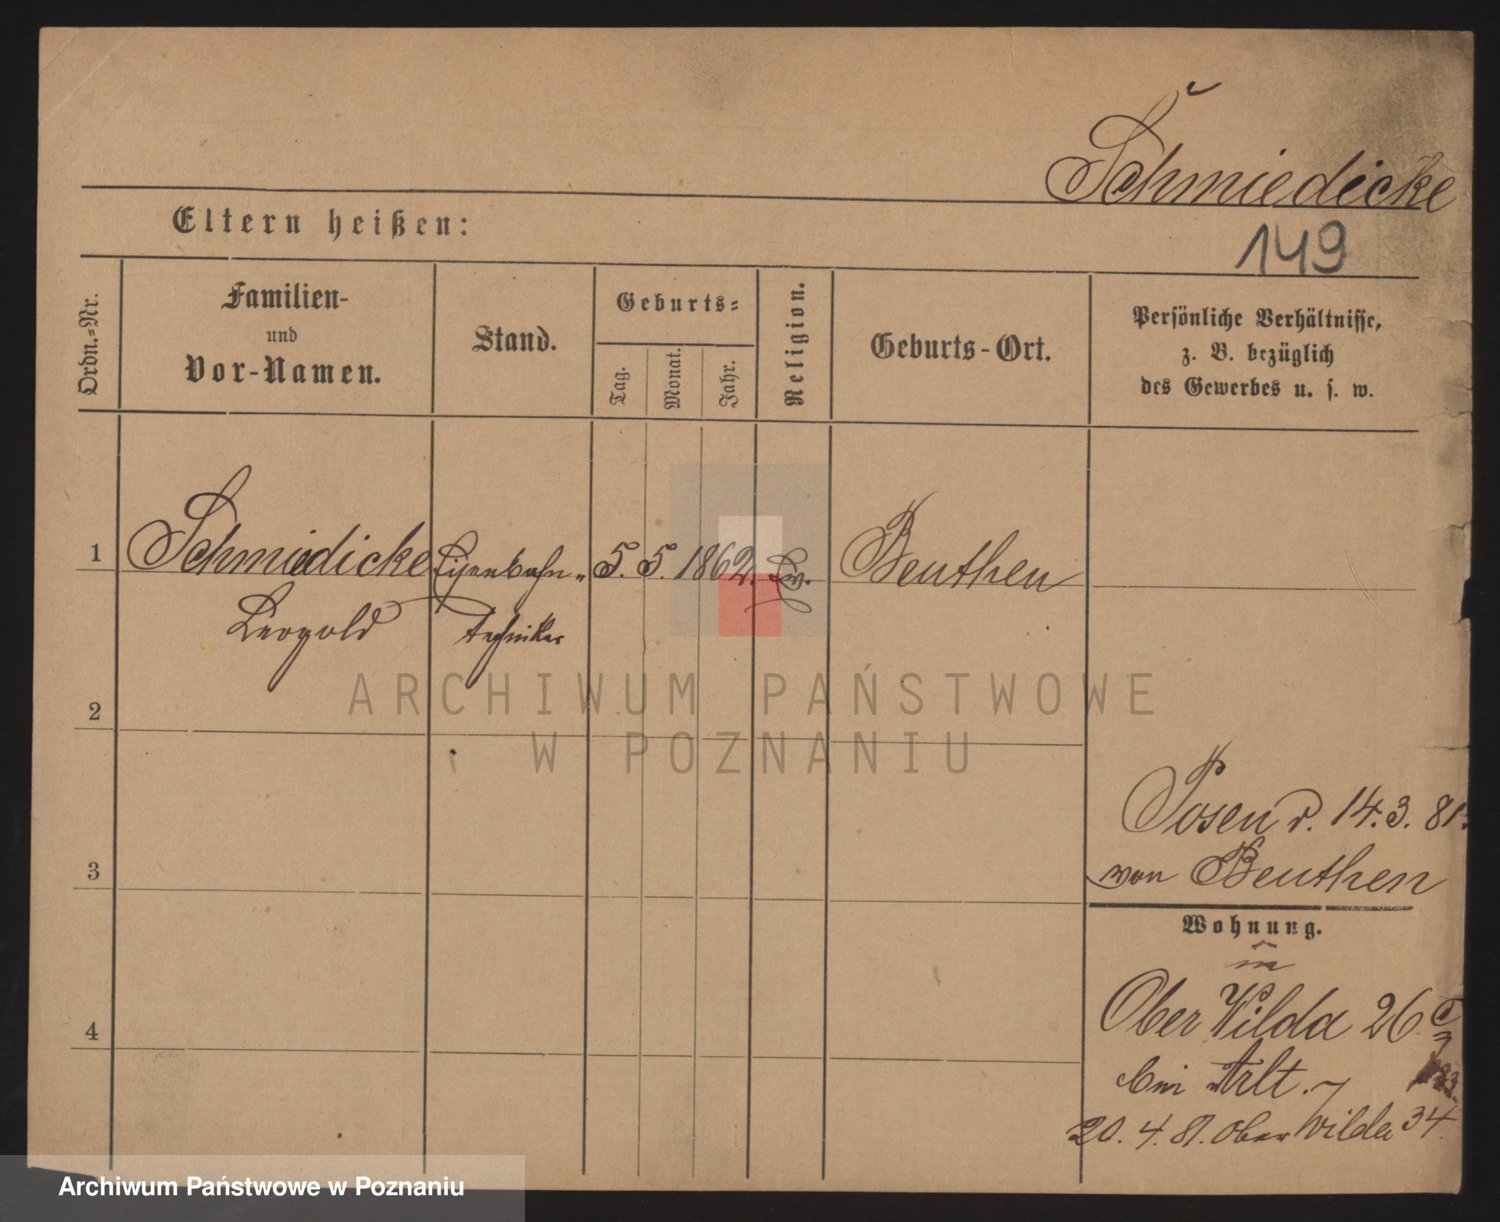 Schmiedicke
Eltern heißen:
149
Ordn.-Nr.
Familien-
und
Vor-Namen.
Stand.
Geburts-
Tag.
Monat.
Jahr.
Religion.
Geburts-Ort.
Persönliche Verhältnisse,
z. B. bezüglich
des Gewerbes u. s. w.
1 Schmiedicke Eisenbahn- 5. 5. 1862. Ev. Beuthen
Leopold Techniker
ARCHIWUM PAŃSTWOWE
W POZNANIU
2
Posen d. 14. 3. 81.
3 von Beuthen
Wohnung.
in
Ober Wilda 26
4
bei Arlt.
20. 4. 81. Ober Wilda 34.
Archiwum Państwowe w Poznaniu